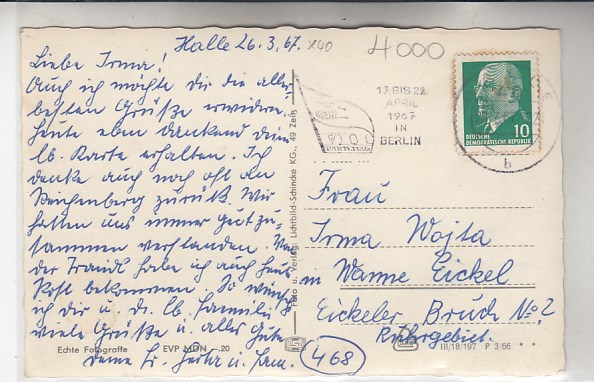 Halle 26.3.67.
x40
4000
Liebe Irma!
Auch ich möchte dir die aller-
besten Grüße erwidern,
heute eben dankend deine
lb. Karte erhalten. Ich
denke auch noch oft an
Reichenberg zurück. Wir
hatten uns immer gut zu-
sammen verstanden. Von
der Traudl habe ich auch heute
Post bekommen. So wünsche
ich dir u. d. lb. Familie
viele Grüße u. alles Gute
deine u. Fam.
Echte Fotografie EVP MDN -.20
Foto u. Verlag: Lichtbild-Schincke KG., 49 Zeitz
17. BIS 22.
APRIL
1967
IN
BERLIN
10
DEUTSCHE
DEMOKRATISCHE REPUBLIK
b
Frau
Irma Wojta
in Wanne Eickel
Eickeler Bruch No. 2
Ruhrgebiet.
468
III/18/197 P 3/66